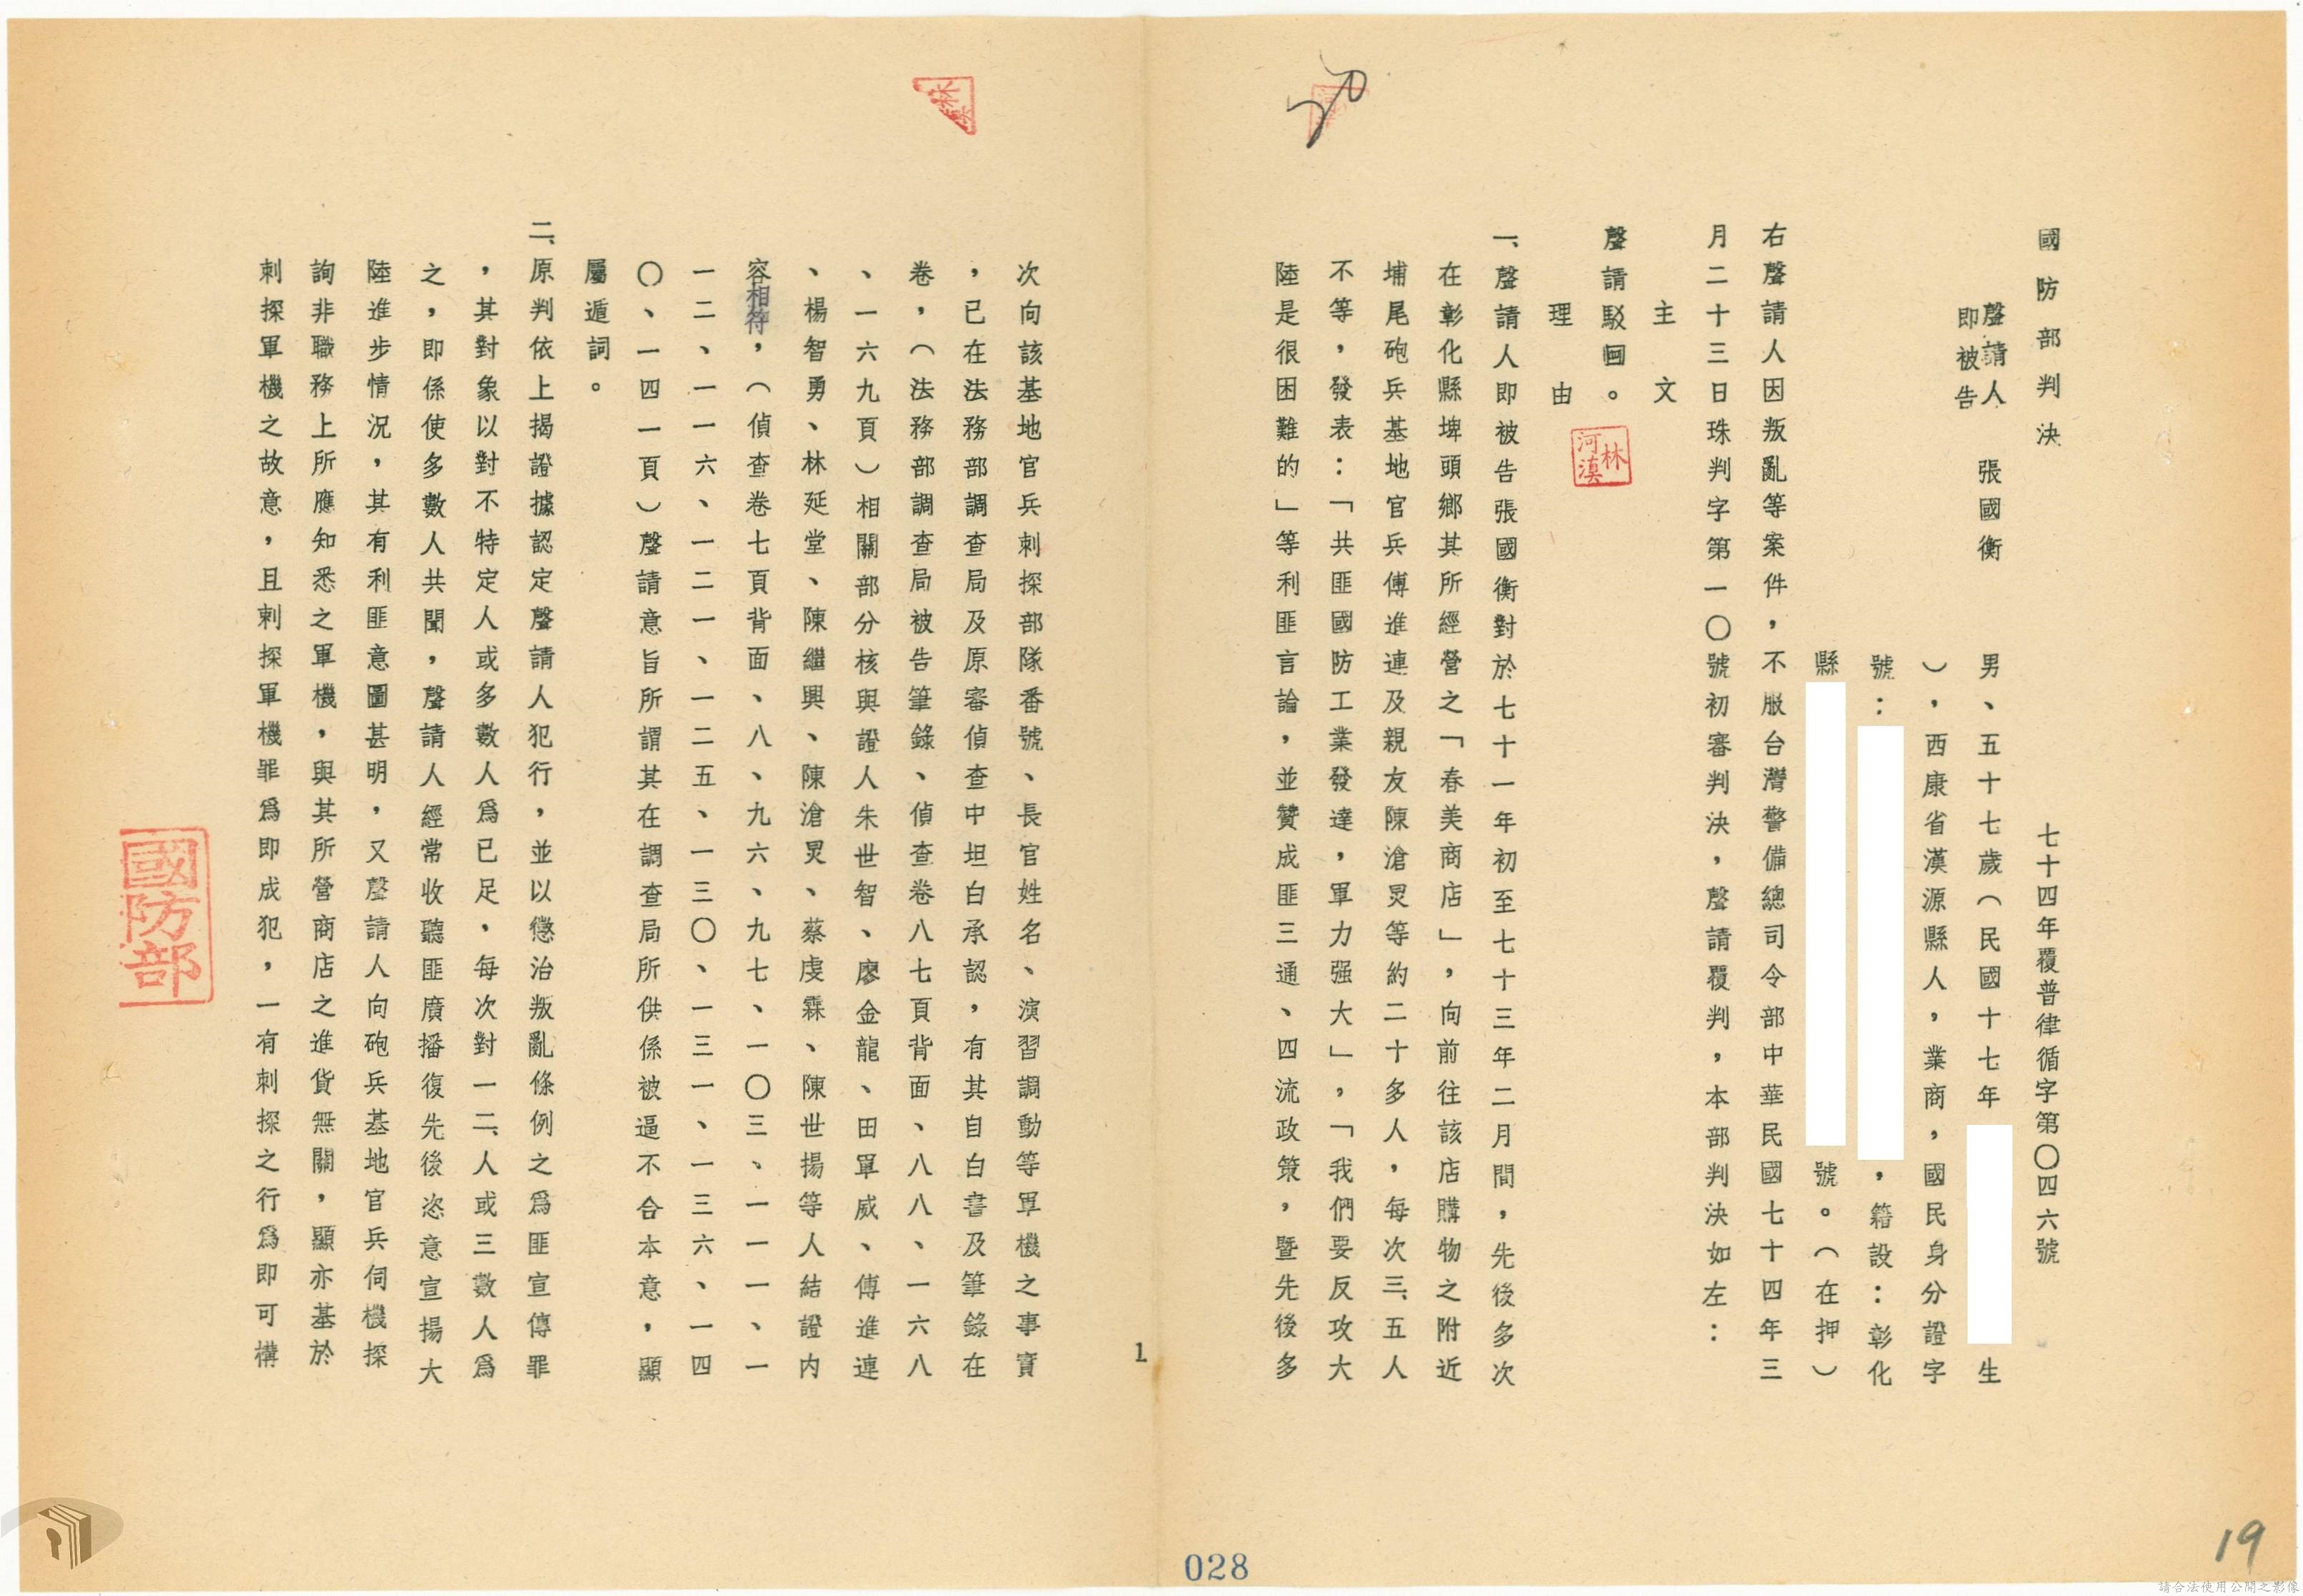 國防部判決
七十四年覆普律循字第〇四六號
聲請人
即被告
張國衡
男、五十七歲（民國十七年
生
），西康省漢源縣人，業商，國民身分證字
號：
，籍設：彰化
縣
號。（在押）
右聲請人因叛亂等案件，不服台灣警備總司令部中華民國七十四年三
月二十三日珠判字第一〇號初審判決，聲請覆判，本部判決如左：
主文
聲請駁回。
理由
一、聲請人即被告張國衡對於七十一年初至七十三年二月間，先後多次
在彰化縣埤頭鄉其所經營之「春美商店」，向前往該店購物之附近
埔尾砲兵基地官兵傅進連及親友陳滄炅等約二十多人，每次三、五人
不等，發表：「共匪國防工業發達，軍力强大」，「我們要反攻大
陸是很困難的」等利匪言論，並贊成匪三通、四流政策，暨先後多
次向該基地官兵刺探部隊番號、長官姓名、演習調動等軍機之事實
，已在法務部調查局及原審偵查中坦白承認，有其自白書及筆錄在
卷，（法務部調查局被告筆錄、偵查卷八七頁背面、八八、一六八
、一六九頁）相關部分核與證人朱世智、廖金龍、田單威、傅進連
、楊智勇、林延堂、陳繼興、陳滄炅、蔡虔霖、陳世揚等人結證內
容相符，（偵查卷七頁背面、八、九六、九七、一〇三、一一一、一
一二、一一六、一二一、一二五、一三〇、一三一、一三六、一四
〇、一四一頁）聲請意旨所謂其在調查局所供係被逼不合本意，顯
屬遁詞。
二、原判依上揭證據認定聲請人犯行，並以懲治叛亂條例之爲匪宣傳罪
，其對象以對不特定人或多數人爲已足，每次對一二、人或三數人爲
之，即係使多數人共聞，聲請人經常收聽匪廣播復先後恣意宣揚大
陸進步情況，其有利匪意圖甚明，又聲請人向砲兵基地官兵伺機探
詢非職務上所應知悉之軍機，與其所營商店之進貨無關，顯亦基於
刺探軍機之故意，且刺探軍機罪爲即成犯，一有刺探之行爲即可構
林河漠
國防部
1
028
19
20
請合法使用公開之影像